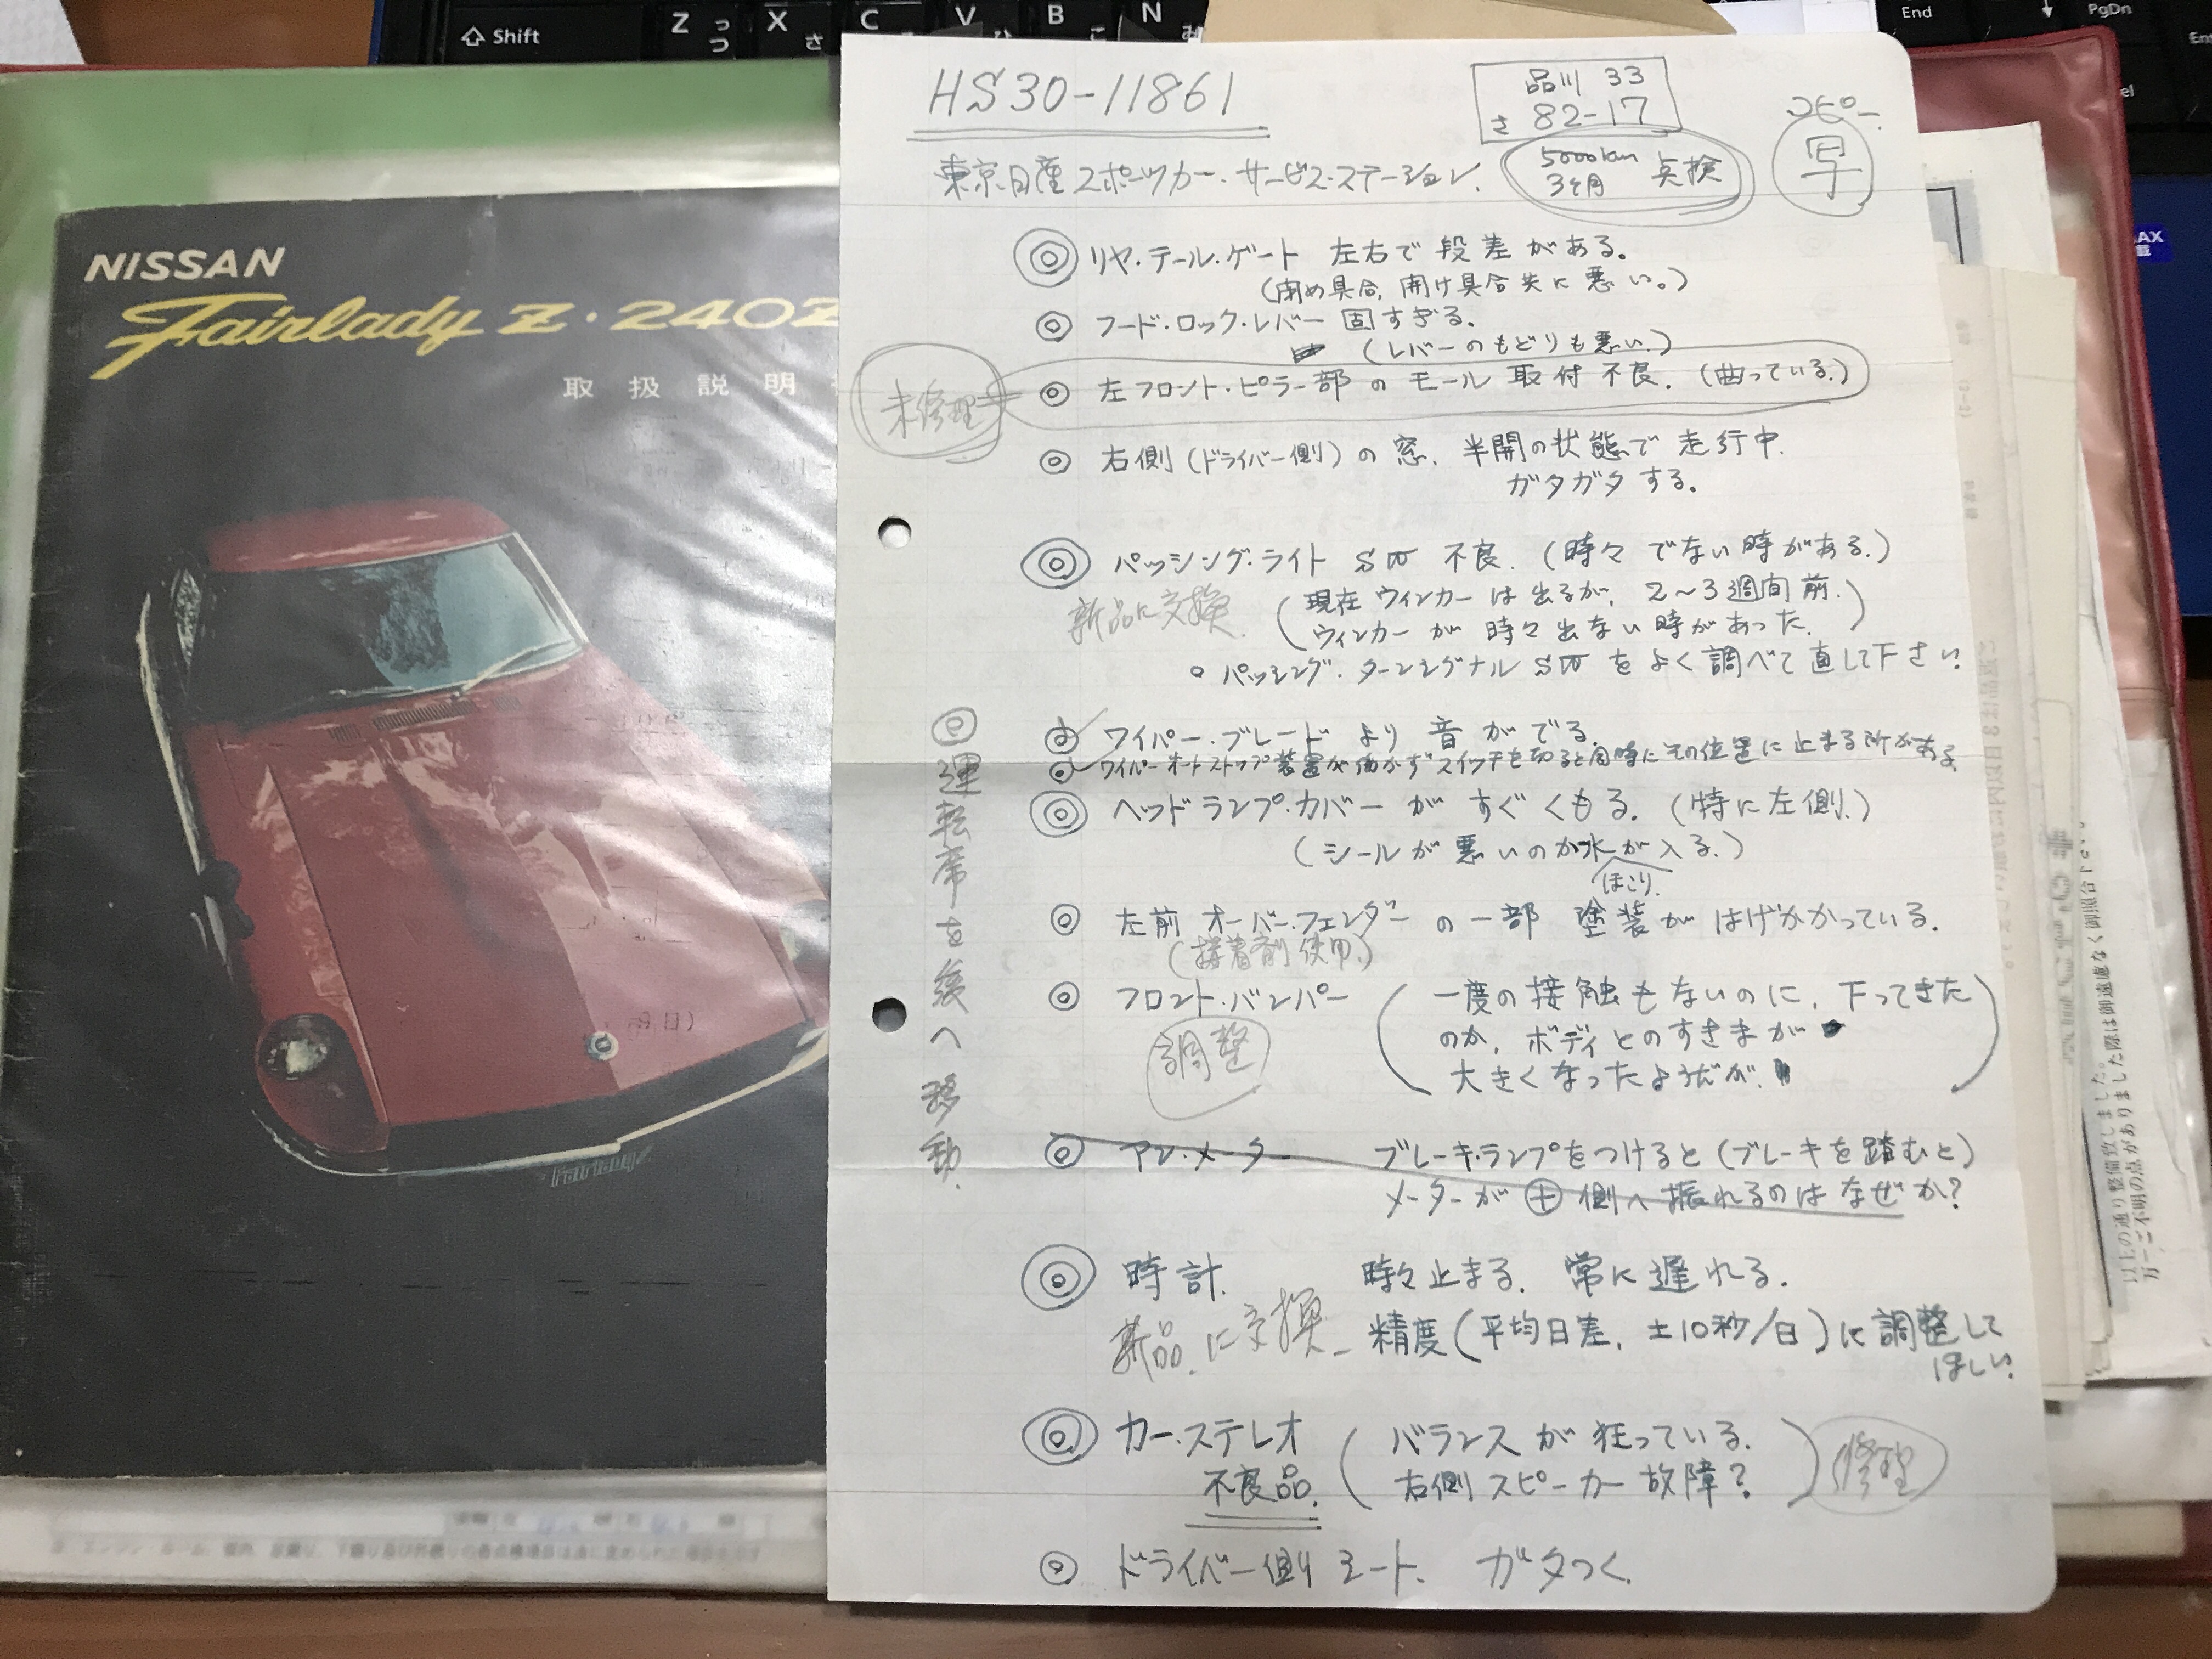 Shift
Z っ
つ
X
さ
C
V
ひ
B
こ
N
み
End
PgDn
NISSAN
Fairlady Z・240Z
取扱説明
Fairlady
HS30-11861
品川 33
さ 82-17
コピー.
早
東京日産スポーツカー・サービス・ステーション.
5000km
3ヶ月
点検
◎ リヤ・テール・ゲート 左右で段差がある。
(閉め具合, 開け具合共に悪い。)
◎ フード・ロック・レバー 固すぎる.
(レバーのもどりも悪い.)
未修理
◎ 左フロント・ピラー部のモール取付不良. (曲っている.)
◎ 右側(ドライバー側)の窓, 半開の状態で走行中.
ガタガタする.
◎ パッシング・ライト SW 不良. (時々でない時がある.)
新品に交換.
(現在ウィンカーは出るが, 2〜3週間前.
ウィンカーが時々出ない時があった.)
○ パッシング・ターンシグナルSWをよく調べて直して下さい.
◎ 運転席を後へ移動.
◎ ワイパー・ブレードより音がでる.
◎ ワイパーオートストップ装置が働かずスイッチを切ると同時にその位置に止まる所がある.
◎ ヘッドランプ・カバーがすぐくもる. (特に左側.)
(シールが悪いのか水が入る.)
ほこり.
◎ 左前オーバーフェンダーの一部塗装がはげかかっている.
(接着剤使用.)
◎ フロント・バンパー (一度の接触もないのに, 下ってきた
のか, ボディとのすきまが
大きくなったようだが.)
調整
◎ アン・メーター ブレーキ・ランプをつけると(ブレーキを踏むと)
メーターが⊕側へ振れるのはなぜか?
◎ 時計. 時々止まる. 常に遅れる.
新品.に交換. 精度(平均日差, ±10秒/日)に調整して
ほしい.
◎ カー・ステレオ (バランスが狂っている.
不良品. 右側スピーカー故障?)
修理
◎ ドライバー側シート. ガタつく.